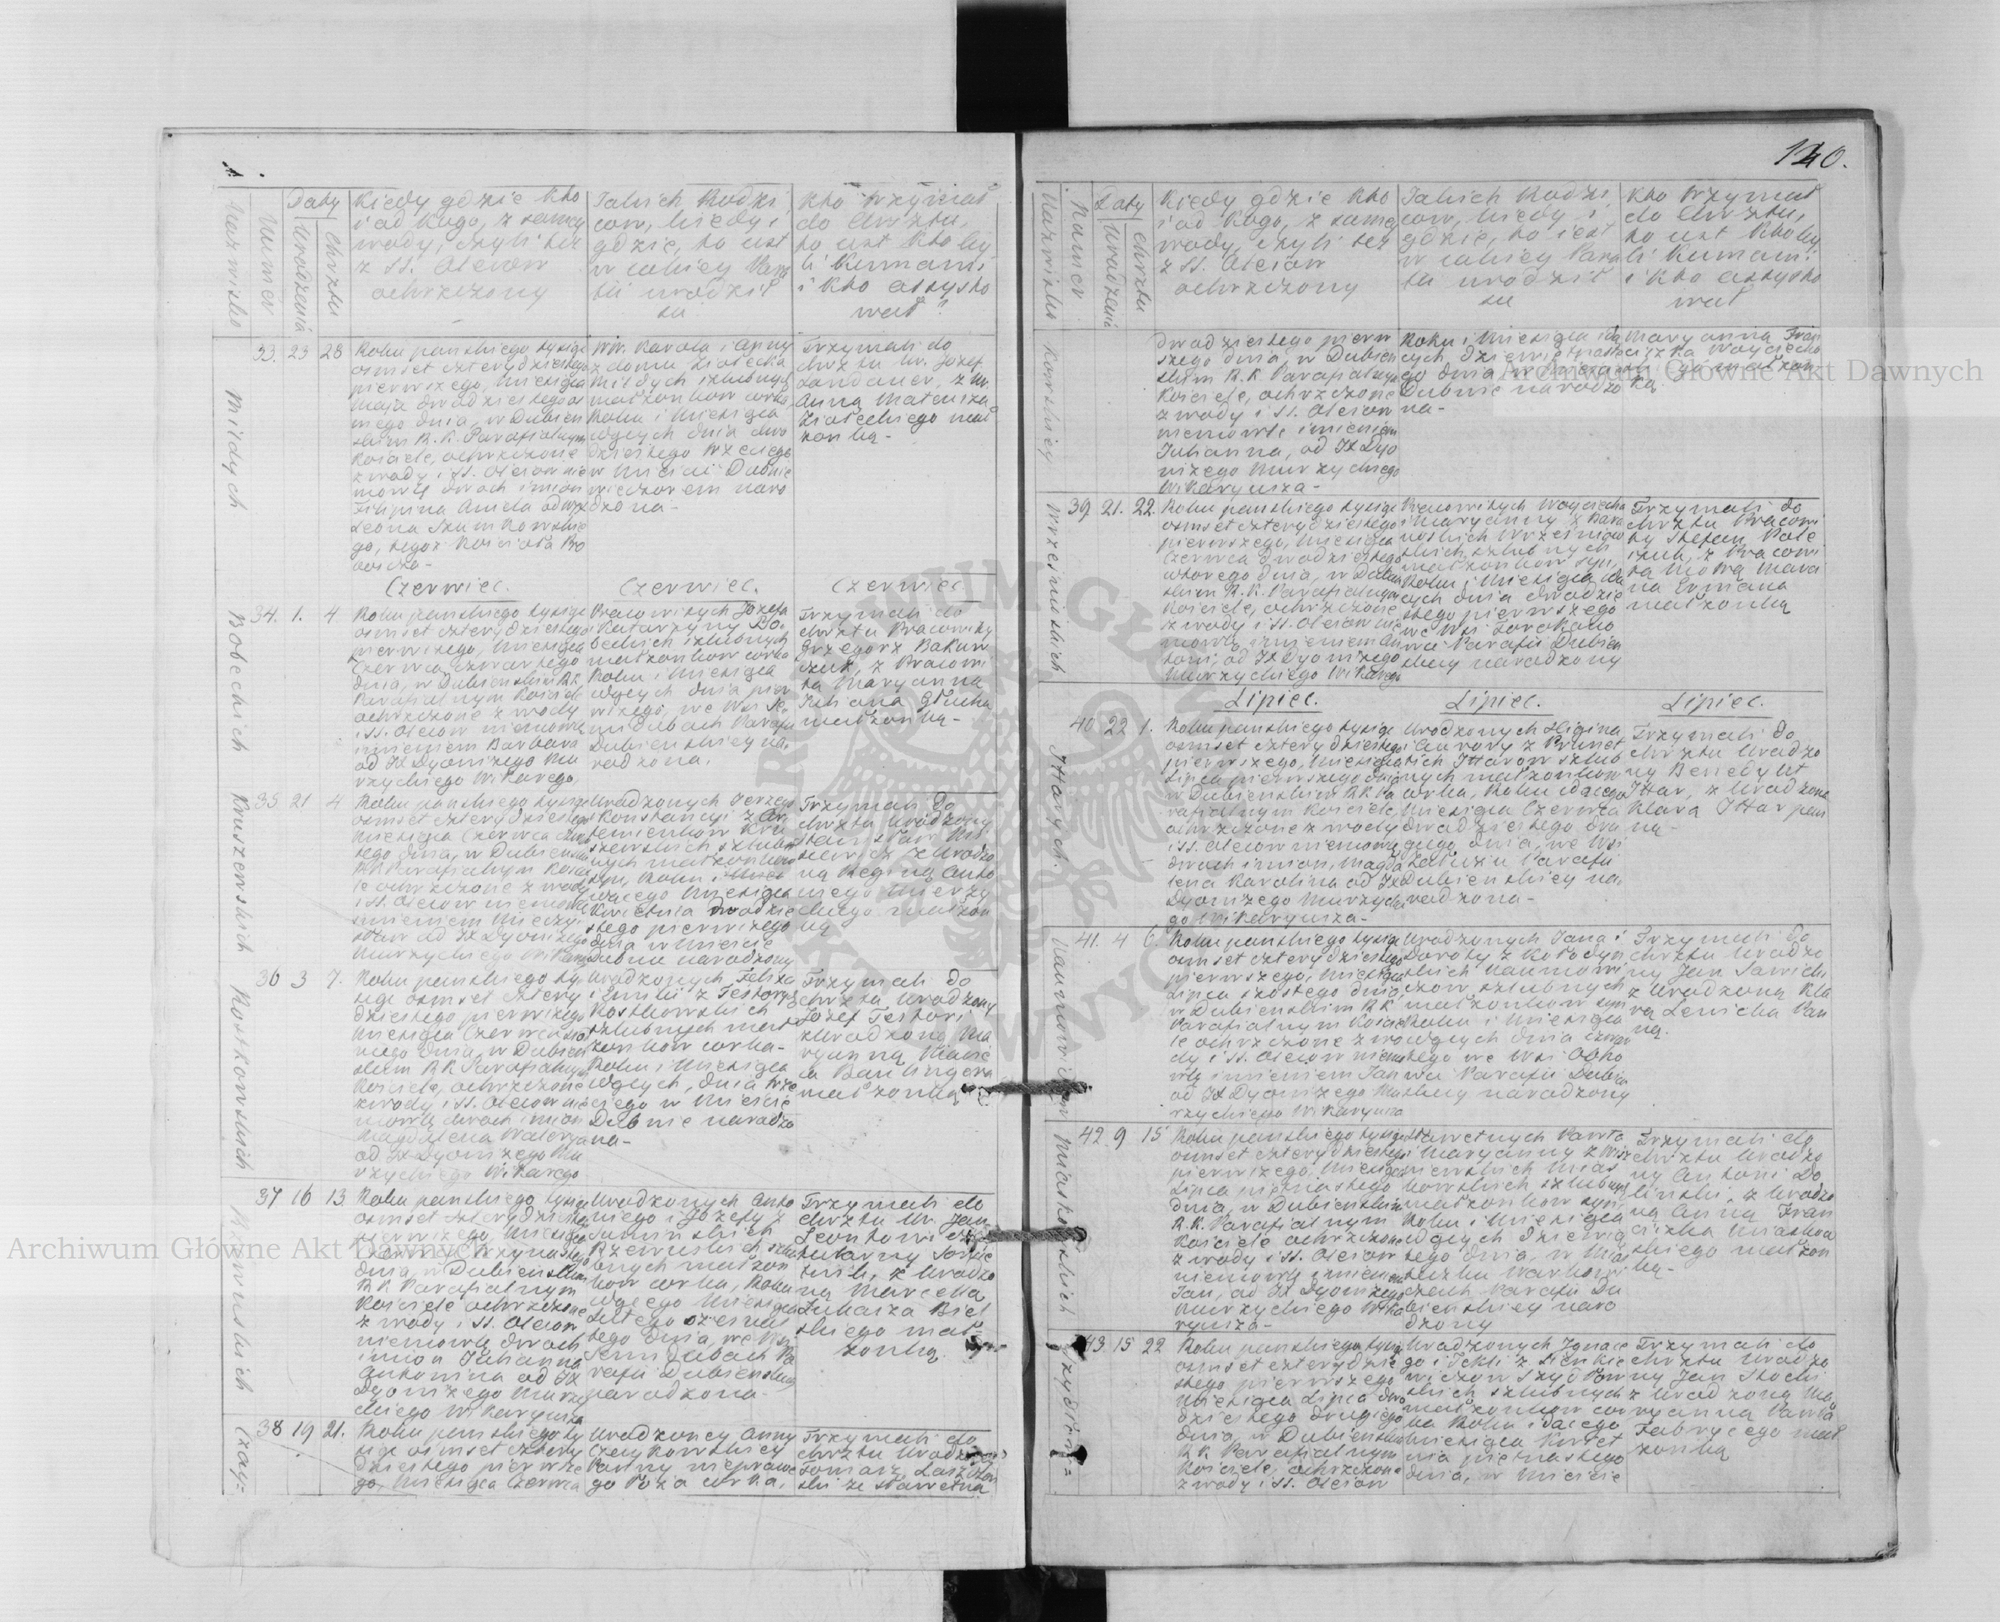 140.
Nazwisko
Numer
Daty
Urodzenia
Chrztu
Kiedy gdzie kto
i od kogo, z samey
wody, czyli też
z SS. Oleiow
ochrzczony
Jakich Rodzi
cow, kiedy i
gdzie, to iest
w iakiey Para
fii urodził
sie
Kto trzymał
do Chrztu,
to iest kto by
li Kumami
i kto assysto
wał?
Mildych
33. 23 28
Roku panskiego tysiąc
osmset czterydziestego
pierwszego, Miesiąca
Maja dwadziestego os
mego dnia, w Dubien
skim R. K. Parafialnym
Kosciele, ochrzczone
z wody i SS. Oleiow nie
mowlę dwoch imion
Filipina Aniela od
Leona Szumkowskie
go, tegoż Koscioła
WW. Karola i Anny
z domu Ziołecka
Mildych szlubnych
małżonkow corka
Roku i Miesiąca
idących dnia dwa
dziestego trzeciego
w Mieście Dubnie
wieczorem naro
dzona-
Trzymali do
chrztu W. Jozef
Landauer, z W.
Anną Mateusza
Ziołeckiego mał
żonką-
Czerwiec.
Czerwiec.
Czerwiec.
Boteckich
34. 1. 4.
Roku panskiego tysiąc
osmset czterydziestego
pierwszego, Miesiąca
Czerwca czwartego
dnia, w Dubienskim R.K.
Parafialnym Kosciele
ochrzczone z wody
i SS. Oleiow niemowlę
imieniem Barbara
od JX Dyonizego Mu
rzyckiego Wikarego
Pracowitych Jozefa
i Katarzyny Bo-
teckich szlubnych
małżonkow corka
Roku i Miesiąca
idących dnia pier
wszego, we Wsi Se
midubach Parafii
Dubienskiey na
rodzona.
Trzymali do
chrztu Pracowity
Grzegorz Bakun
czuk, z Pracowi
tą Maryanną
Juliana Głucha
małżonką-
Kruszewskich
35. 21 4
Roku panskiego tysiąc
osmset czterydziestego
Miesiąca Czerwca czwar
tego dnia, w Dubienskim
RK Parafialnym Kosci
le ochrzczone z wody
i SS. Oleiow niemowlę
imieniem Mieczy
sław od JX Dyonizego
Murzyckiego Wikarego
Urodzonych Jerzego
i Konstancyi z Ar
temienkow Kru
szewskich szlubn
nych małżonkow
syn, Roku
idącego Miesiąca
Kwietnia dwadzie
stego pierwszego
dnia w Mieście
Dubnie narodzony
Trzymali do
chrztu Urodzony
z Urodzo
ną Reginą Anto
niego Mierzy
ckiego małżon
ką
Rostkowskich
36 3 7.
Roku panskiego ty
siąc osmset cztery
dziestego pierwszego
Miesiąca Czerwca siod
mego dnia, w Dubien
skim RK Parafialnym
Kosciele, ochrzczone
z wody i SS. Oleiow nie
mowlę dwoch imion
Magdalena Walerya
od JX Dyonizego Mu
rzyckiego Wikarego
Urodzonych Felixa
i Emilii z Testorych
Rostkowskich
szlubnych mał
żonkow corka-
Roku i Miesiąca
idących, dnia trze
ciego w Mieście
Dubnie narodzo
na-
Trzymali do
chrztu Urodzony
Jozef Testori
z Urodzoną Ma
ryanną
małżonką
Rzewuskich
37 16 13.
Roku panskiego tysiąc
osmset czterydziestego
pierwszego, Miesiąca
Czerwca trzynastego
dnia, w Dubienskim
RK Parafialnym
Kosciele ochrzczone
z wody i SS. Oleiow
niemowlę dwoch
imion Julianna
Antonina od JX
Dyonizego Murzy
ckiego Wikaryusza
Urodzonych Anto
niego i Jozefy z
Suminskich
Rzewuskich szlu
bnych małżon
kow corka, Roku
idącego Miesiąca
Lutego szesnas
tego dnia, we Wsi
Semidubach Pa
rafii Dubienskiey
narodzona-
Trzymali do
chrztu W. Jan
Leontowicz
z Urodzo
ną Marcellą
Łukasza Biel
skiego mał-
żonką.
Czay=
38 19 21.
Roku panskiego ty
siąc osmset cztery
dziestego pierwsze
go, Miesiąca Czerwca
Urodzoney Anny
Czaykowskiey
Panny niepraweg
go łoża corka.
Trzymali do
chrztu Urodzony
Tomasz
ski ze sławetną
Nazwisko
Numer
Daty
Urodzenia
Chrztu
Kiedy gdzie kto
i od kogo, z samey
wody, czyli też
z SS. Oleiow
ochrzczony
Jakich Rodzi
cow, kiedy i
gdzie, to iest
w iakiey Para
fii urodził
sie
Kto trzymał
do Chrztu,
to iest kto by
li Kumami
i kto assysto
wał
kowskiey
dwadziestego pierw
szego dnia, w Dubien
skim R.K Parafialnym
Kosciele, ochrzczone
z wody i SS. Oleiow
niemowlę imieniem
Julianna, od JX Dyo
nizego Murzyckiego
Wikaryusza-
Roku i Miesiąca idą
cych, dziewiętnaste
go dnia w Mieście
Dubnie narodzo
na-
Maryanną Fran
ciszka Woyciecho
wskiego małżon
ką
Wrześniewskich
39. 21. 22.
Roku panskiego tysiąc
osmset czterydziestego
pierwszego, Miesiąca
Czerwca dwadziestego
wtorego dnia, w Dubien
skim R.K. Parafialnym
Kosciele, ochrzczone
z wody i SS. Oleiow nie
mowlę, imieniem An
toni, od JX Dyonizego
Murzyckiego Wikarego
Pracowitych Woyciecha
i Maryanny z Bara
nowskich Wrześniew
skich, szlubnych
małżonkow syn,
Roku i Miesiąca idą
cych dnia dwadzie
stego pierwszego
we Wsi Tarakano
wce Parafii Dubien
skiey narodzony
Trzymali do
chrztu Pracowi
ty Stefan Pole
szuk, z Pracowi
tą Motrą Mara
na
małżonką
Lipiec.
Lipiec.
Lipiec.
Ittarych.
40. 22 1.
Roku panskiego tysiąc
osmset czterydziestego
pierwszego, Miesiąca
Lipca pierwszego dnia
w Dubienskim R.K. Pa
rafialnym Kosciele,
ochrzczone z wody
i SS. Oleiow niemowlę
dwoch imion, Magda
lena Karolina od JX
Dyonizego Murzycki
go Wikaryusza-
Urodzonych Higina
i Aurory z Prusiet
kich Ittarow szlub
nych małżonkow
corka, Roku idącego
Miesiąca Czerwca
dwadziestego dru
giego, dnia, we Wsi
Zabłuziu Parafii
Dubienskiey na
rodzona-
Trzymali do
chrztu Urodzo
ny Benedykt
Ittar, z Urodzoną
Klarą Ittar pan
ną-
Naumowiczow
41. 4 6.
Roku panskiego tysiąc
osmset czterydziestego
pierwszego, Miesiąca
Lipca szostego dnia,
w Dubienskim R.K.
Parafialnym Kosciele
le ochrzczone z wo
dy i SS. Oleiow niemo
wlę imieniem Jan
od JX Dyonizego Mu
rzyckiego Wikaryusza
Urodzonych Jana i
Doroty z Kołodyn
skich Naumowi
czow szlubnych
małżonkow syn
Roku i Miesiąca
idących dnia czwar
tego we Wsi Obho
wa Parafii Dubien
skiey narodzony
Trzymali do
chrztu Urodzo
ny Jan Sawicki
z Urodzoną Kla
rą Lewicka Pan
ną.
Miaskowskich
42. 9 15
Roku panskiego tysiąc
osmset czterydziestego
pierwszego, Miesiąca
Lipca piętnastego
dnia, w Dubienskim
R.K. Parafialnym
Kosciele ochrzczone
z wody i SS. Oleiow
niemowlę imieniem
Jan, od JX Dyonizego
Murzyckiego Wika
ryusza-
Sławetnych Pawła
i Maryanny z Wisz
niewskich Mias
kowskich szlubnych
małżonkow syn
Roku i Miesiąca
idących dziewią
tego dnia, w Mia
steczku Warkowi
czach Parafii Du
bienskiey naro
dzony
Trzymali do
chrztu Urodzo
ny Antoni Do
linski, z Urodzo
ną Anną Fran
ciszka Miaskow
skiego małżon
ką-
Szydłow=
43 15 22
Roku panskiego tysiąc
osmset czterydzie
stego pierwszego
Miesiąca Lipca dwa
dziestego drugiego
dnia, w Dubienskim
R.K. Parafialnym
Kosciele, ochrzczone
z wody i SS. Oleiow
Urodzonych Ignace
go i Tekli z Sienkie
wiczow Szydłow
skich szlubnych
małżonkow cor
ka Roku idącego
Miesiąca Kwiet
nia piętnastego
dnia, w Mieście
Trzymali do
chrztu Urodzo
ny Jan Stocki
z Urodzoną Ma
ryanną Pawła
Fabrycego mał
żonką
Archiwum Główne Akt Dawnych
Archiwum Główne Akt Dawnych
ARCHIWUM GŁÓWNE AKT DAWNYCH